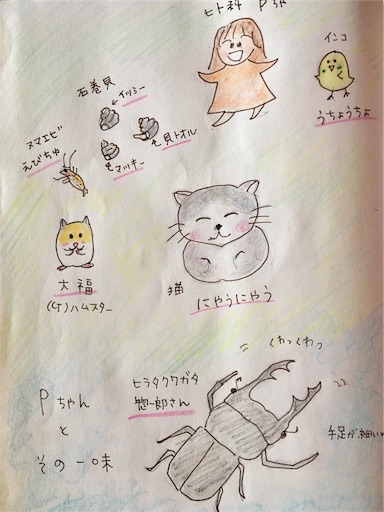 ヒト科 Pちゃ
インコ
うちょうちょ
石巻貝
イッシー
貝トオル
マッキー
ヌマエビ
えびちゅ
大福
(G)ハムスター
猫
にゃうにゃう
くわっくわっ
ヒラタクワガタ
惣一郎さん
手足が細い
Pちゃん
と
その一味